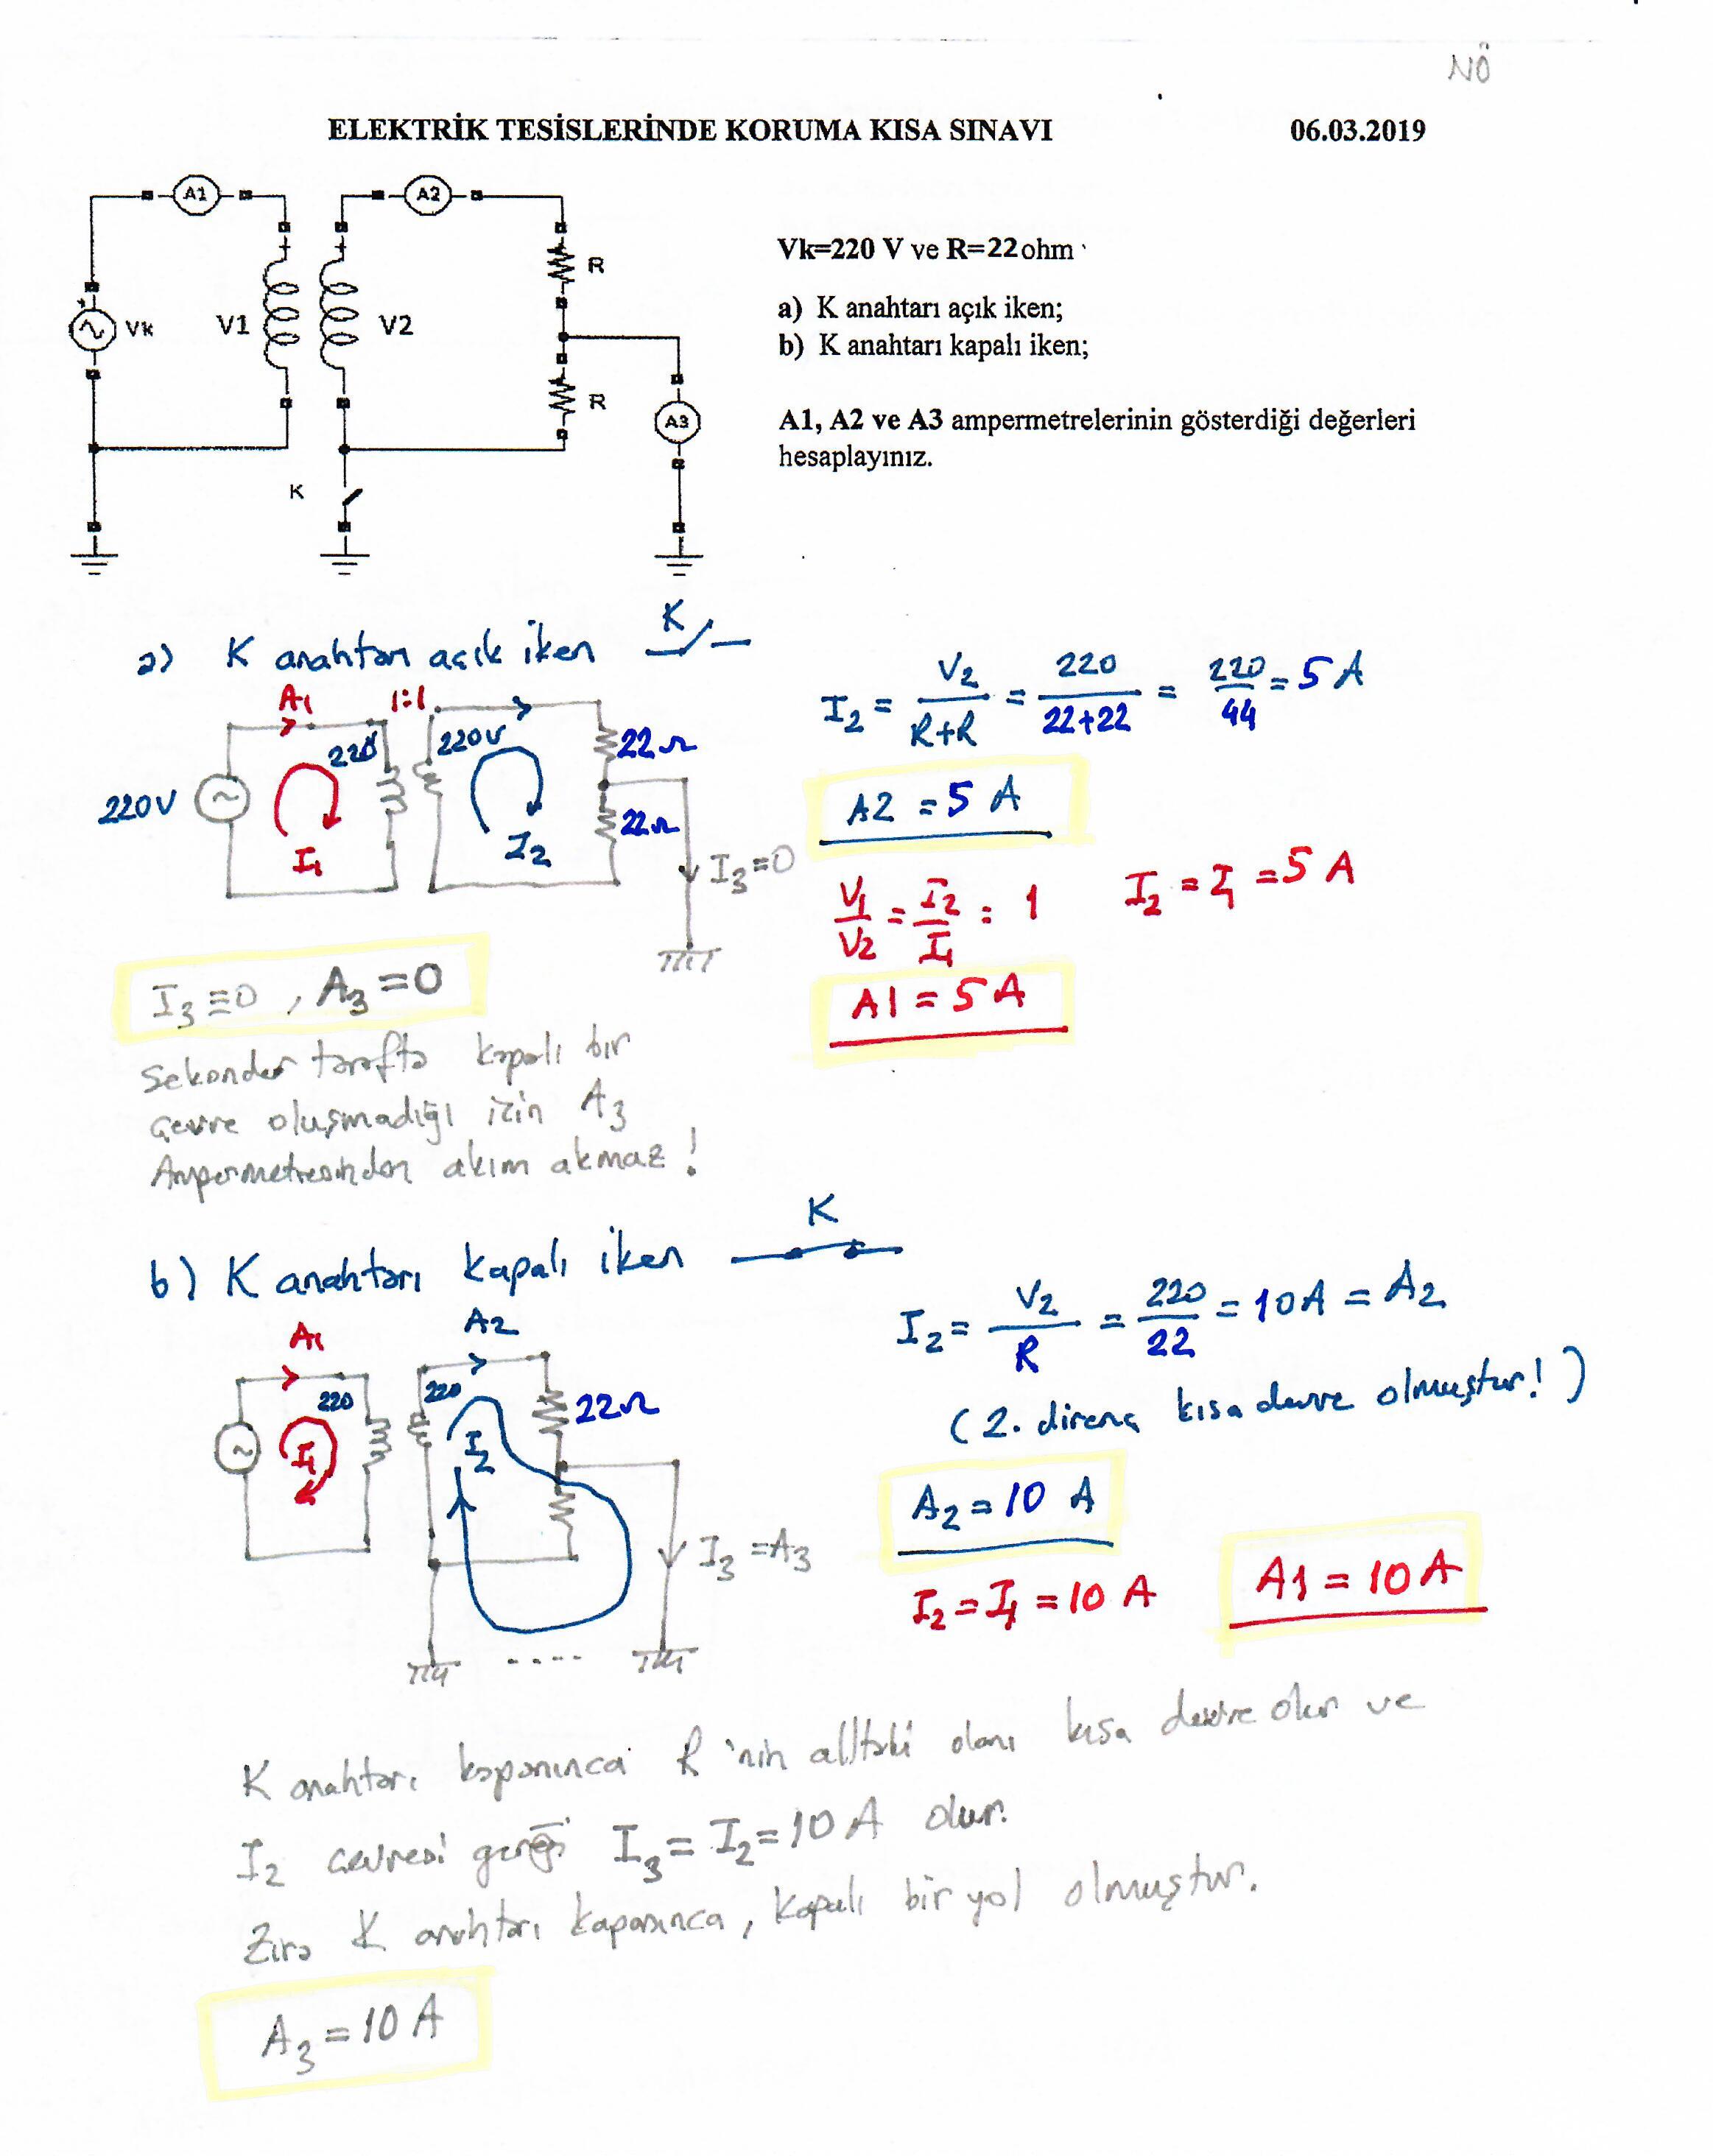 NÖ
ELEKTRİK TESİSLERİNDE KORUMA KISA SINAVI 06.03.2019
A1 A2
Vk=220 V ve R=22 ohm
R
a) K anahtarı açık iken;
Vk V1 V2
b) K anahtarı kapalı iken;
R
A3
A1, A2 ve A3 ampermetrelerinin gösterdiği değerleri
hesaplayınız.
K
a) K anahtarı açık iken K
I2 = V2/R+R = 220/22+22 = 220/44 = 5 A
A1 1:1
220 220V 22Ω
220V
A2 = 5 A
22Ω
I1 I2
I3=0
V1/V2 = I2/I1 = 1 I2 = I1 = 5 A
I3 ≡ 0 , A3 = 0
A1 = 5 A
Sekonder tarafta kapalı bir
çevre oluşmadığı için A3
Ampermetresinden akım akmaz!
b) K anahtarı kapalı iken K
I2 = V2/R = 220/22 = 10A = A2
A1 A2
220 220 22Ω
(2. direnç kısa devre olmuştur!)
I1 I2
A2 = 10 A
I3 = A3
I2 = I1 = 10 A A1 = 10 A
K anahtarı kapanınca R'nin alltaki olanı kısa devre olur ve
I2 çevresi gereği I3 = I2 = 10 A olur.
Zira K anahtarı kapanınca, kapalı bir yol olmuştur.
A3 = 10 A